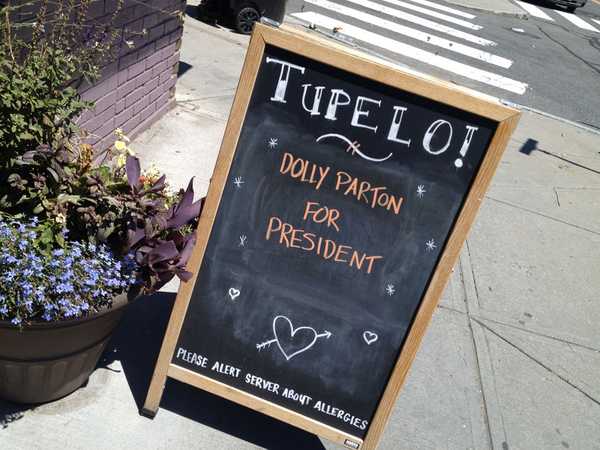 TUPELO!
DOLLY PARTON
FOR
PRESIDENT
PLEASE ALERT SERVER ABOUT ALLERGIES